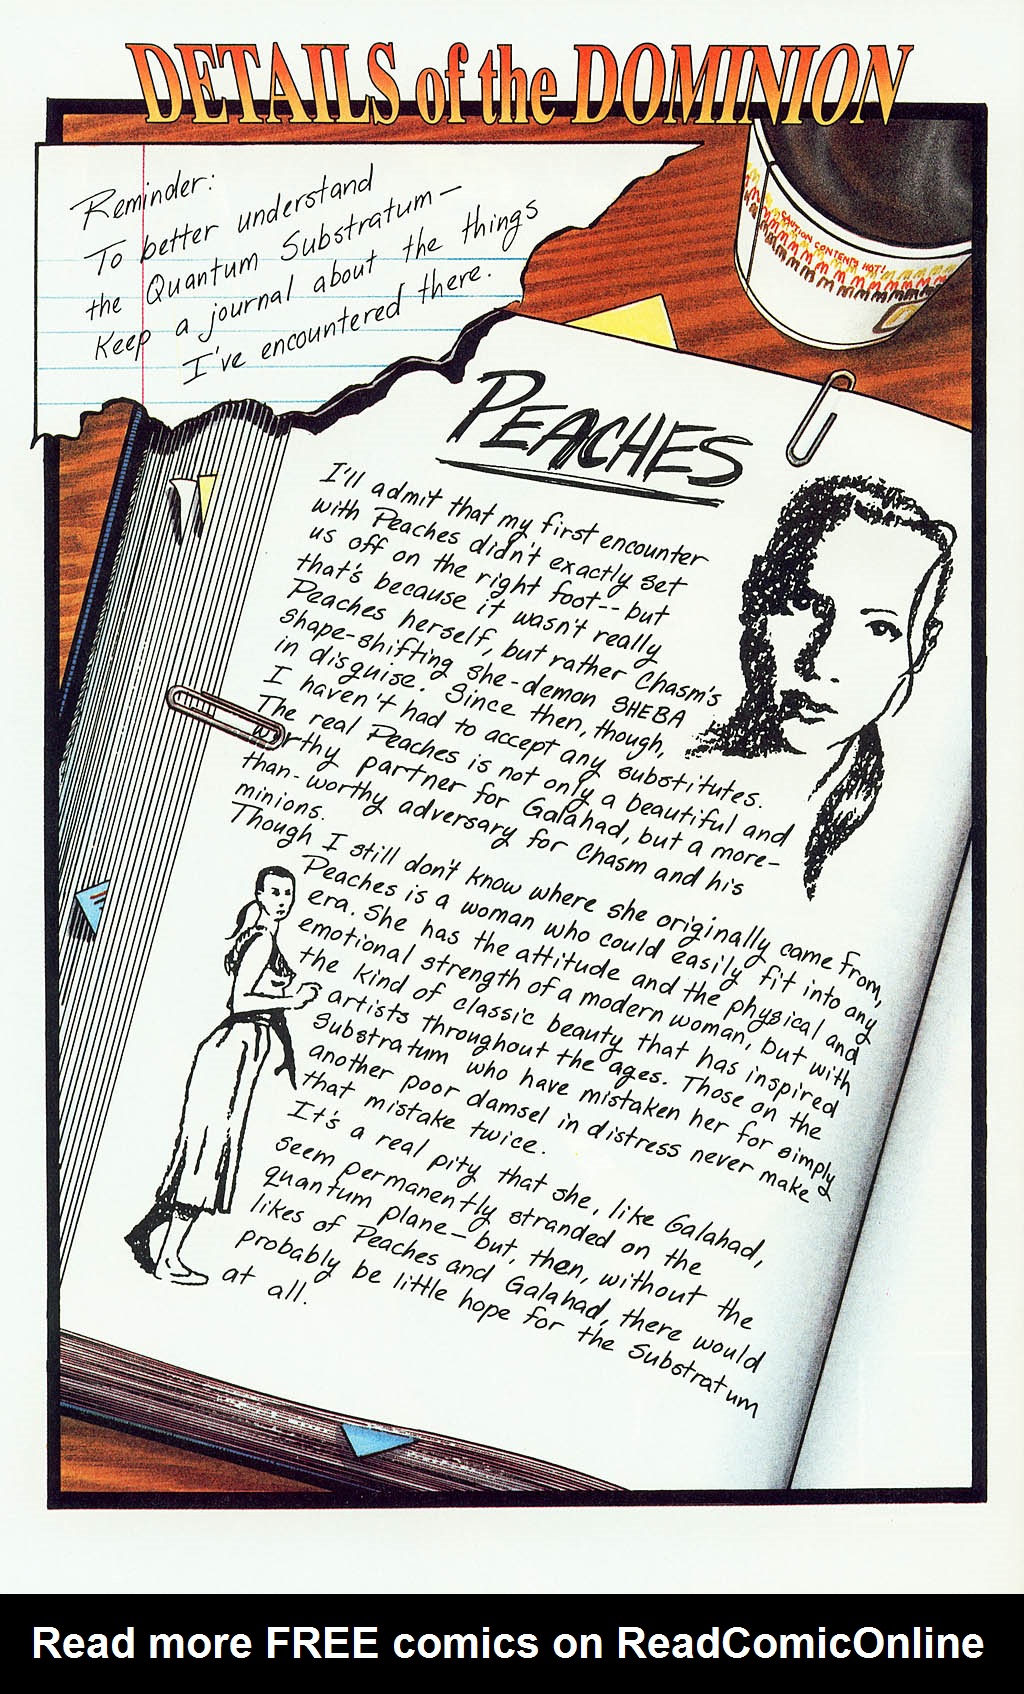 DETAILS of the DOMINION
Reminder:
To better understand
the Quantum Substratum—
Keep a journal about the things
I've encountered there.
CAUTION CONTENTS HOT!
PEACHES
I'll admit that my first encounter
with Peaches didn't exactly set
us off on the right foot-- but
that's because it wasn't really
Peaches herself, but rather Chasm's
shape-shifting she-demon SHEBA
in disguise. Since then, though,
I haven't had to accept any substitutes.
The real Peaches is not only a beautiful and
worthy partner for Galahad, but a more-
than-worthy adversary for Chasm and his
minions.
Though I still don't know where she originally came from,
Peaches is a woman who could easily fit into any
era. She has the attitude and the physical and
emotional strength of a modern woman, but with
the kind of classic beauty that has inspired
artists throughout the ages. Those on the
Substratum who have mistaken her for simply
another poor damsel in distress never make
that mistake twice.
It's a real pity that she, like Galahad,
seem permanently stranded on the
quantum plane— but, then, without the
likes of Peaches and Galahad, there would
probably be little hope for the Substratum
at all.
Read more FREE comics on ReadComicOnline